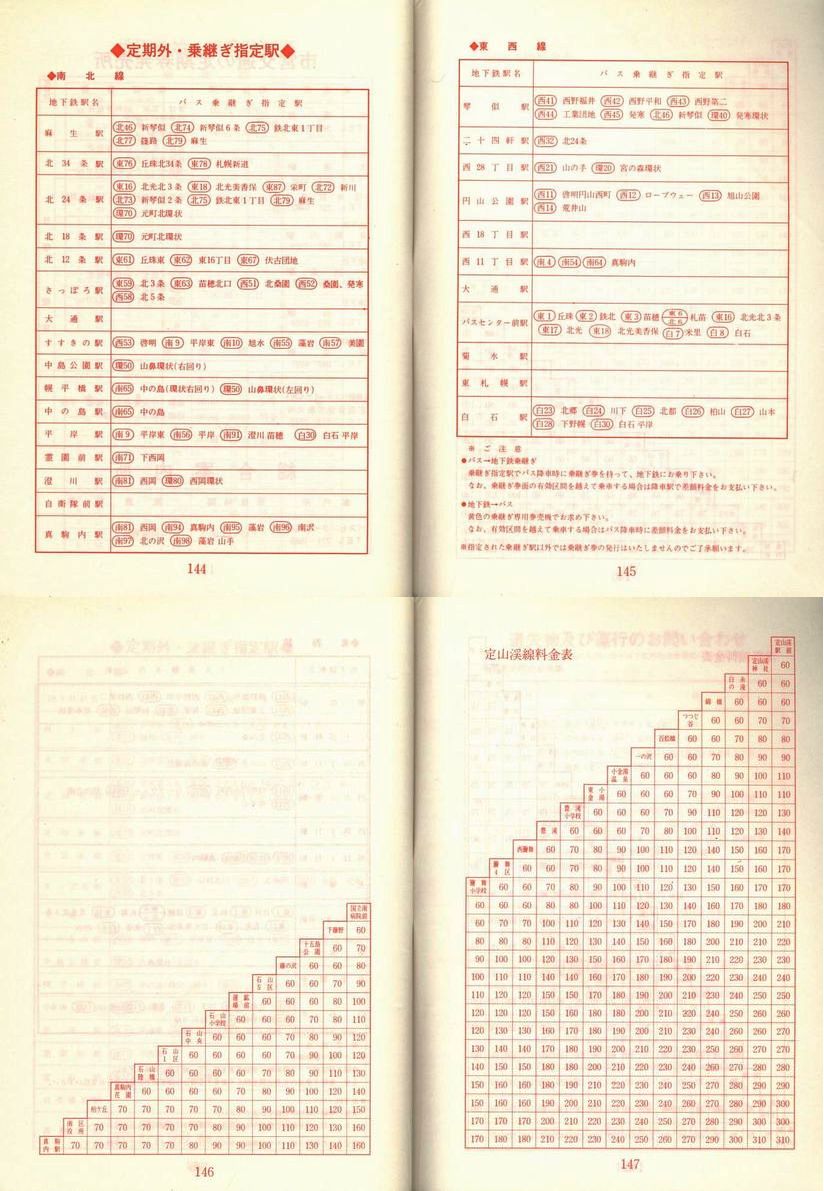 ◆定期外・乗継ぎ指定駅◆
◆南北線
地下鉄駅名 バス乗継ぎ指定駅
麻生駅 北46 新琴似 北74 新琴似6条 北75 鉄北東1丁目
北77 篠路 北79 麻生
北34条駅 東76 丘珠北34条 東78 札幌新道
北24条駅 東16 北光北3条 東18 北光美香保 東87 栄町 北72 新川
北73 新琴似2条 北75 鉄北東1丁目 北79 麻生
環70 元町北環状
北18条駅 環70 元町北環状
北12条駅 東61 丘珠東 東62 東16丁目 東67 伏古団地
さっぽろ駅 東59 北3条 東63 苗穂北口 西51 北桑園 西52 桑園、発寒
西58 北5条
大通駅
すすきの駅 西53 啓明 南9 平岸東 南10 旭水 南55 藻岩 南57 美園
中島公園駅 環50 山鼻環状(右回り)
幌平橋駅 南65 中の島(環状右回り) 環50 山鼻環状(左回り)
中の島駅 南65 中の島
平岸駅 南9 平岸東 南56 平岸 南91 澄川苗穂 白30 白石平岸
霊園前駅 南71 下西岡
澄川駅 南81 西岡 環80 西岡環状
自衛隊前駅
真駒内駅 南81 西岡 南94 真駒内 南95 藻岩 南96 南沢
南97 北の沢 南98 藻岩山手
144
◆東西線
地下鉄駅名 バス乗継ぎ指定駅
琴似駅 西41 西野福井 西42 西野平和 西43 西野第二
西44 工業団地 西45 発寒 北46 新琴似 環40 発寒環状
二十四軒駅 西32 北24条
西28丁目駅 西21 山の手 環20 宮の森環状
円山公園駅 西11 啓明円山西町 西12 ロープウェー 西13 旭山公園
西14 荒井山
西18丁目駅
西11丁目駅 南4 南54 南64 真駒内
大通駅
バスセンター前駅 東1 丘珠 東2 鉄北 東3 苗穂 東6 北6 札苗 東16 北光北3条
東17 北光 東18 北光美香保 白7 米里 白8 白石
菊水駅
東札幌駅
白石駅 白23 北郷 白24 川下 白25 北都 白26 柏山 白27 山本
白28 下野幌 白30 白石平岸
※ご注意
●バス→地下鉄乗継ぎ
乗継ぎ指定駅でバス降車時に乗継ぎ券を持って、地下鉄にお乗り下さい。
なお、乗継ぎ券面の有効区間を越えて乗車する場合は降車駅で差額料金をお支払い下さい。
●地下鉄→バス
黄色の乗継ぎ専用券売機でお求め下さい。
なお、有効区間を越えて乗車する場合はバス降車時に差額料金をお支払い下さい。
※指定された乗継ぎ駅以外では乗継ぎ券の発行はいたしませんのでご了承願います。
145
国立南病院前
下藤野 60
十五島公園 60 70
藤の沢 60 60 80
石山5区 60 60 70 90
60 60 60 80 100
石山小学校 60 60 60 70 80 110
石山中央 60 60 60 70 80 90 120
石山1区 60 60 60 60 70 90 100 120
石山陸橋 60 60 60 60 70 80 90 120 130
真駒内花園 60 60 60 60 70 80 90 100 120 140
柏ケ丘 70 70 70 70 70 80 90 100 110 120 150
南区役所 70 70 70 70 70 80 90 100 110 120 130 160
真駒内駅 70 70 70 70 70 80 90 90 100 110 130 140 160
146
定山渓線料金表
定山渓駅前
定山渓神社 60
白糸の滝 60 60
錦橋 60 60 60
つつじ谷 60 60 70 70
百松橋 60 60 70 80 80
一の沢 60 60 70 80 90 90
小金湯温泉 60 60 60 80 90 100 110
東小金湯 60 60 60 70 90 100 110 110
豊滝小学校 60 60 60 70 90 110 120 120 130
豊滝 60 60 60 70 80 100 110 120 130 140
西簾舞 60 70 80 90 100 110 120 140 150 160 170
簾舞4区 60 60 70 80 90 100 110 120 140 150 160 170
簾舞小学校 60 60 70 80 90 100 110 120 130 150 160 170 170
60 60 60 80 80 100 110 120 130 140 160 170 180 180
60 70 70 100 110 120 130 140 150 170 180 190 200 210
80 80 80 110 120 130 140 150 160 180 200 210 210 220
90 100 100 120 130 150 160 170 180 190 200 220 220 230
100 110 110 140 140 160 170 180 190 200 220 230 240 240
110 120 120 150 150 170 180 190 200 210 230 240 250 250
120 120 120 150 160 180 190 200 210 220 240 250 260 260
120 130 130 160 170 180 190 200 210 230 240 260 260 270
130 140 140 170 180 190 200 210 220 230 250 260 270 270
140 150 150 180 180 200 210 220 230 240 260 270 280 280
150 160 160 180 190 210 220 230 240 250 270 280 290 290
150 160 160 190 200 210 220 230 240 260 270 280 290 300
170 170 170 200 210 220 230 240 250 270 280 290 300 300
170 180 180 210 220 230 240 250 260 270 290 300 310 310
147